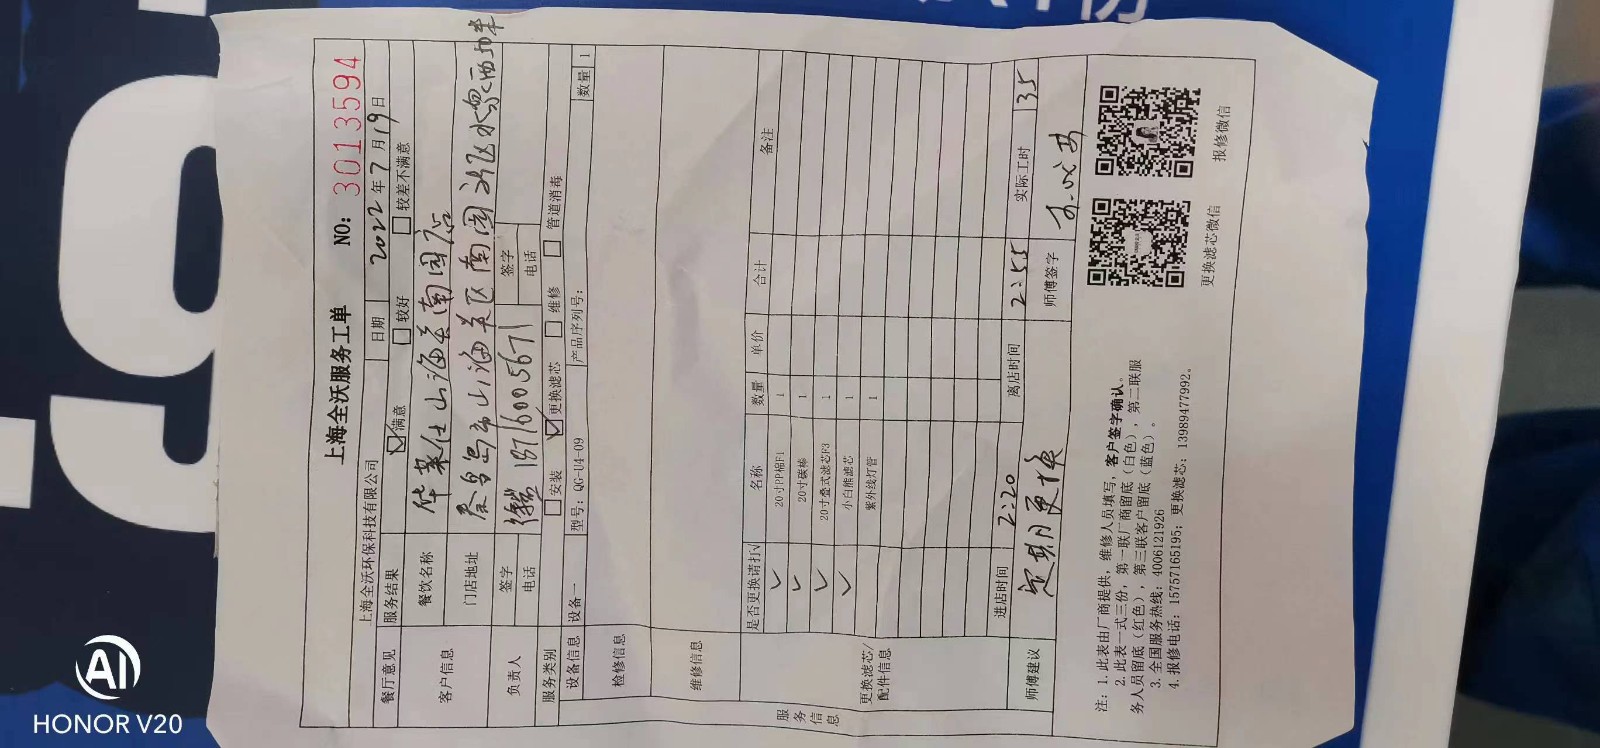 上海全沃服务工单
NO: 3013594
上海全沃环保科技有限公司 日期 2022年7月19日
餐厅意见 服务结果 满意 较好 较差不满意
客户信息 餐饮名称 华莱仕山海关南园店
门店地址 秦皇岛市山海关区南园
负责人 签字 签字
电话 13716005671 电话
服务类别 安装 更换滤芯 维修 管道消毒
设备信息 设备一 型号: QG-U4-09 产品序列号: 数量 1
检修信息
维修信息
服务信息
更换滤芯/配件信息
是否更换请打√ 名称 数量 单价 合计 备注
✓ 20寸PP棉F1 1
✓ 20寸碳棒 1
✓ 20寸叠式滤芯F3 1
✓ 小白熊滤芯 1
紫外线灯管 1
进店时间 2:20 离店时间 2:55 实际工时 35
师傅建议 定期更换 师傅签字
注: 1. 此表由厂商提供，维修人员填写，客户签字确认。
2. 此表一式三份，第一联厂商留底（白色），第二联服
务人员留底（红色），第三联客户留底（蓝色）。
3. 全国服务热线: 4006121926
4. 报修电话: 15757165195; 更换滤芯: 13989477992。
更换滤芯微信
报修微信
AI
HONOR V20